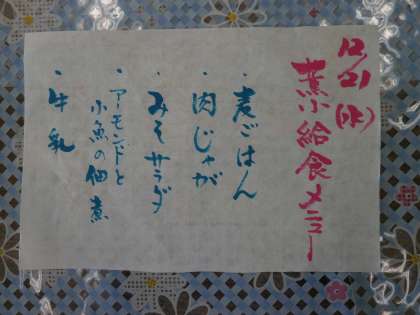 12/21(水)
薫小給食メニュー
・麦ごはん
・肉じゃが
・みそサラダ
・アーモンドと
小魚の佃煮
・牛乳